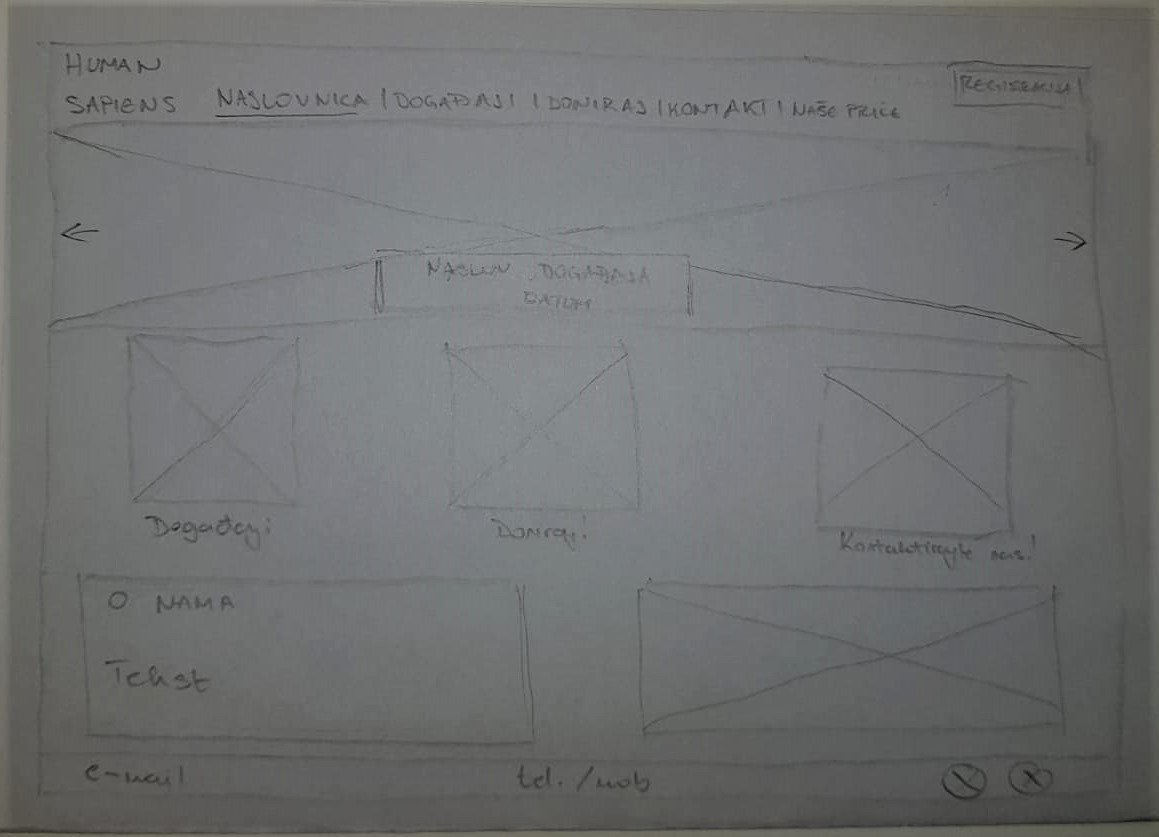 HUMAN
SAPIENS NASLOVNICA | DOGAĐAJI | DONIRAJ | KONTAKT | NAŠE PRIČE
NASLOV DOGAĐAJA
DATUM
Događaji
Doniraj!
Kontaktirajte nas!
O NAMA
Tekst
e-mail
tel. /mob